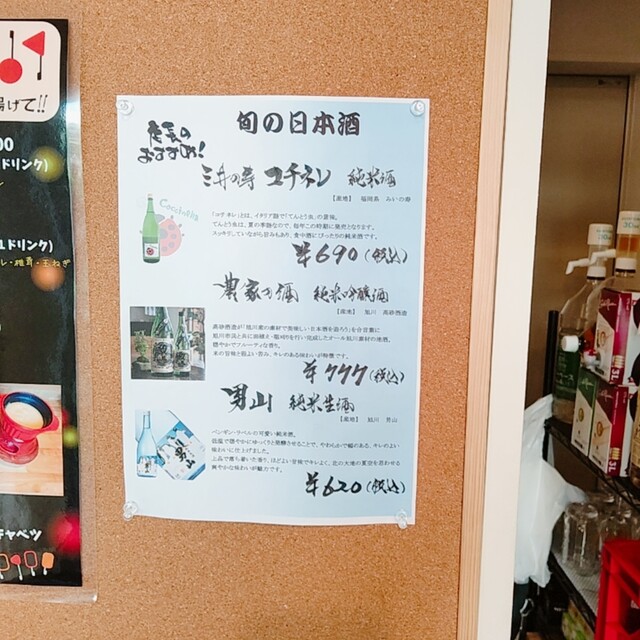 揚げて!!
00
ドリンク)
ドリンク)
レ・椎茸・玉ねぎ
キャベツ
旬の日本酒
店長の
おすすめ!
三井の寿 コチネレ 純米酒
【産地】 福岡県 みいの寿
Coccinella
「コチネレ」とは、イタリア語で「てんとう虫」の意味。
てんとう虫は、夏の季語なので、毎年この時期に発売となります。
スッキリしていながら旨みもあり、食中酒にぴったりの純米酒です。
¥690(税込)
農家の酒 純米吟醸酒
【産地】 旭川 高砂酒造
高砂酒造が「旭川産の素材で美味しい日本酒を造ろう」を合言葉に
穏やかでフルーティな香り。
米の旨味と程よい甘み、キレのある味わいが特徴です。
¥777(税込)
男山 純米生酒
【産地】 旭川 男山
ペンギン・ラベルの可愛い純米酒。
低温で穏やかにゆっくりと発酵させることで、やわらかで幅のある、キレのよい
味わいに仕上げました。
上品で落ち着いた香り、ほどよい旨味でキレよく、北の大地の夏空を思わせる
爽やかな味わいが魅力です。
¥620(税込)
男山